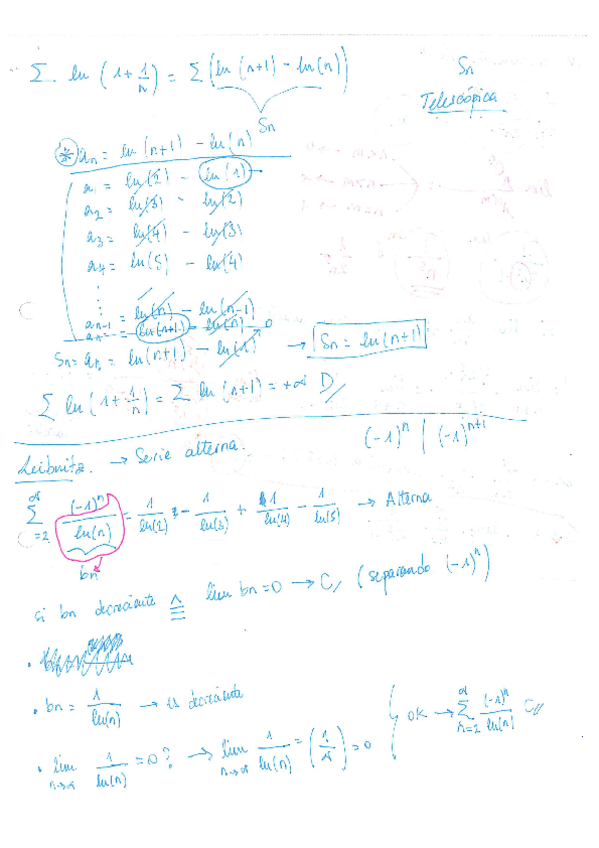 Σ ln (1+1/n) = Σ (ln (n+1) - ln(n))
Sn
Telescópica
Sn
* an = ln(n+1) - ln(n)
a1 = ln(2) - ln(1)
a2 = ln(3) - ln(2)
a3 = ln(4) - ln(3)
a4 = ln(5) - ln(4)
⋮
an-1 = ln(n) - ln(n-1)
an = ln(n+1) - ln(n) 0
Sn = an = ln(n+1) - ln(n) → Sn = ln(n+1)
Σ ln (1+1/n) = Σ ln (n+1) = +∞ D//
Leibnitz. → Serie alterna. (-1)^n | (-1)^{n+1}
Σ_{=2}^{∞} (-1)^n/ln(n) = 1/ln(2) - 1/ln(3) + 1/ln(4) - 1/ln(5) → Alterna
bn
si bn decreciente ∧ lim bn = 0 → C// (separando (-1)^n)
• bn = 1/ln(n) → es decreciente
• lim_{n→∞} 1/ln(n) = 0? → lim_{n→∞} 1/ln(n) = (1/∞) = 0
OK → Σ_{n=2}^{∞} (-1)^n/ln(n) C//